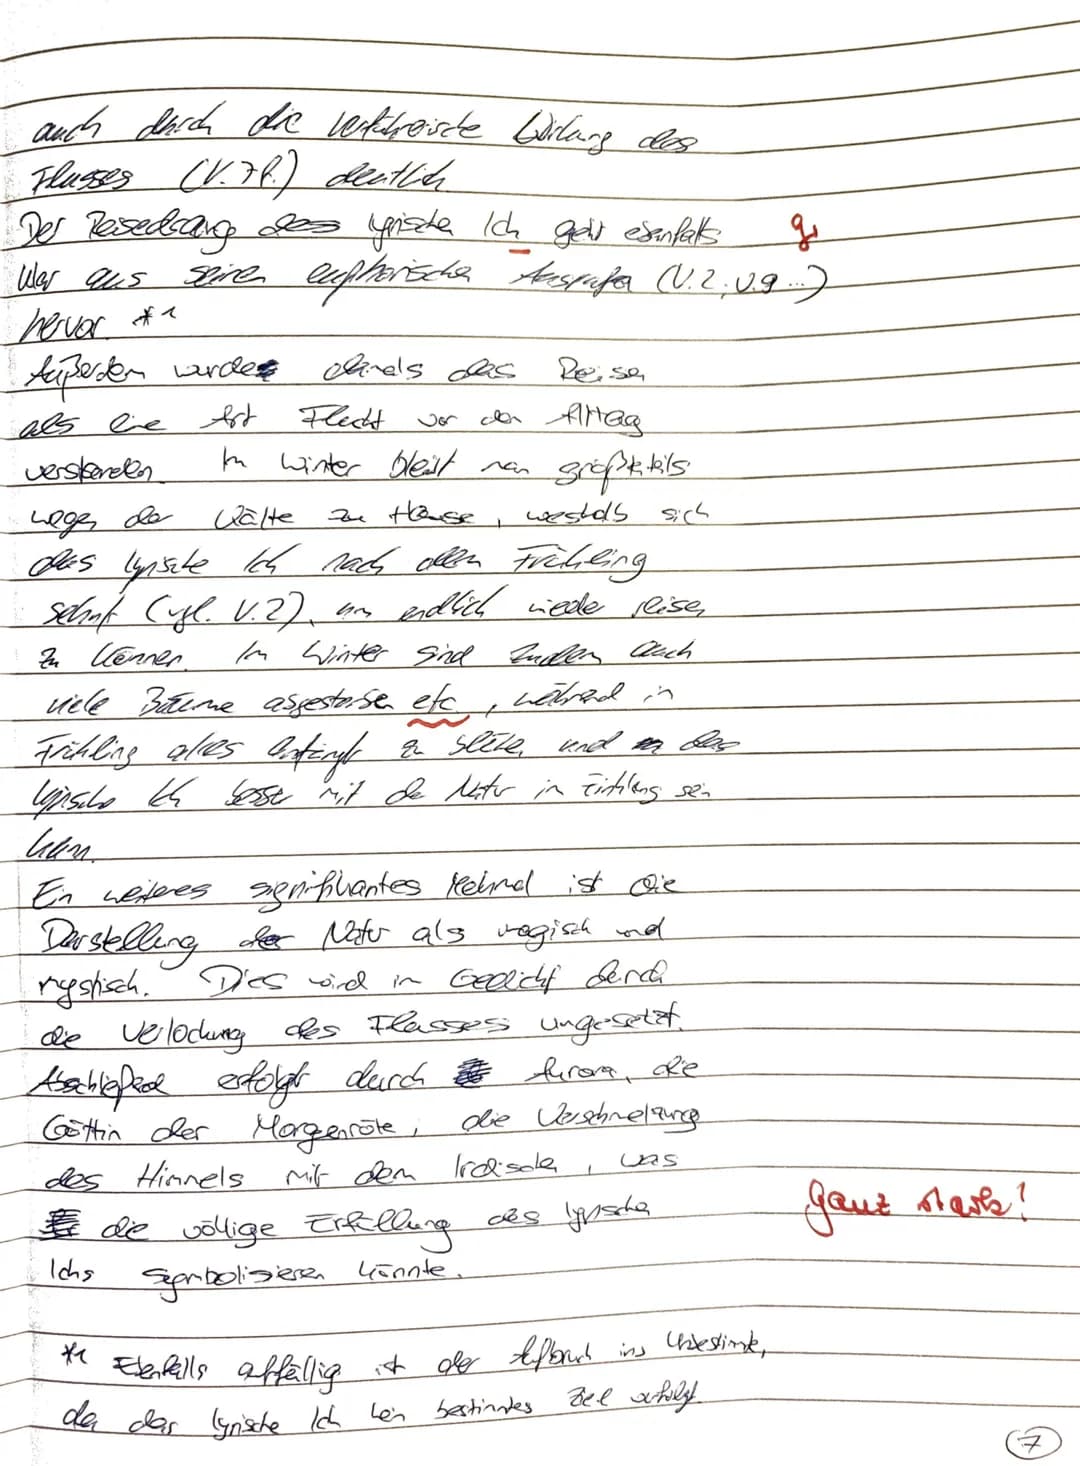 auch durch die verführerische Wirkung des
Flusses (V. 7f.) deutlich
Der Reisedrang des lyrische Ich geht ebenfalls
klar aus seinen euphorische Ausrufen (V. 2, V. 9 ...)
hervor. *1
Außerdem wurde damals das Reisen
als eine Art Flucht vor den Alltag
verstanden. Im Winter bleibt man größtenteils
wegen der Kälte zu Hause, weshalb sich
das lyrische Ich nach dem Frühling
sehnt (vgl. V. 2), um endlich wieder reisen
zu können. Im Winter sind zudem auch
viele Bäume abgestorben etc, während im
Frühling alles anfängt zu blühen und das
lyrische Ich besser mit der Natur im Einklang sein
kann.
Ein weiteres signifikantes Merkmal ist die
Darstellung der Natur als magisch und
mystisch. Dies wird im Gedicht durch
die Verlockung des Flusses umgesetzt.
Abschließend erfolgt durch Aurora, die
Göttin der Morgenröte, die Verschmelzung
des Himmels mit dem Irdischen, was
die völlige Erfüllung des lyrische
Ichs symbolisieren könnte.
*1 Ebenfalls auffällig ist der Aufbruch ins Unbestimmte,
da das lyrische Ich kein bestimmtes Ziel verfolgt.
gr
ganz stark!
7